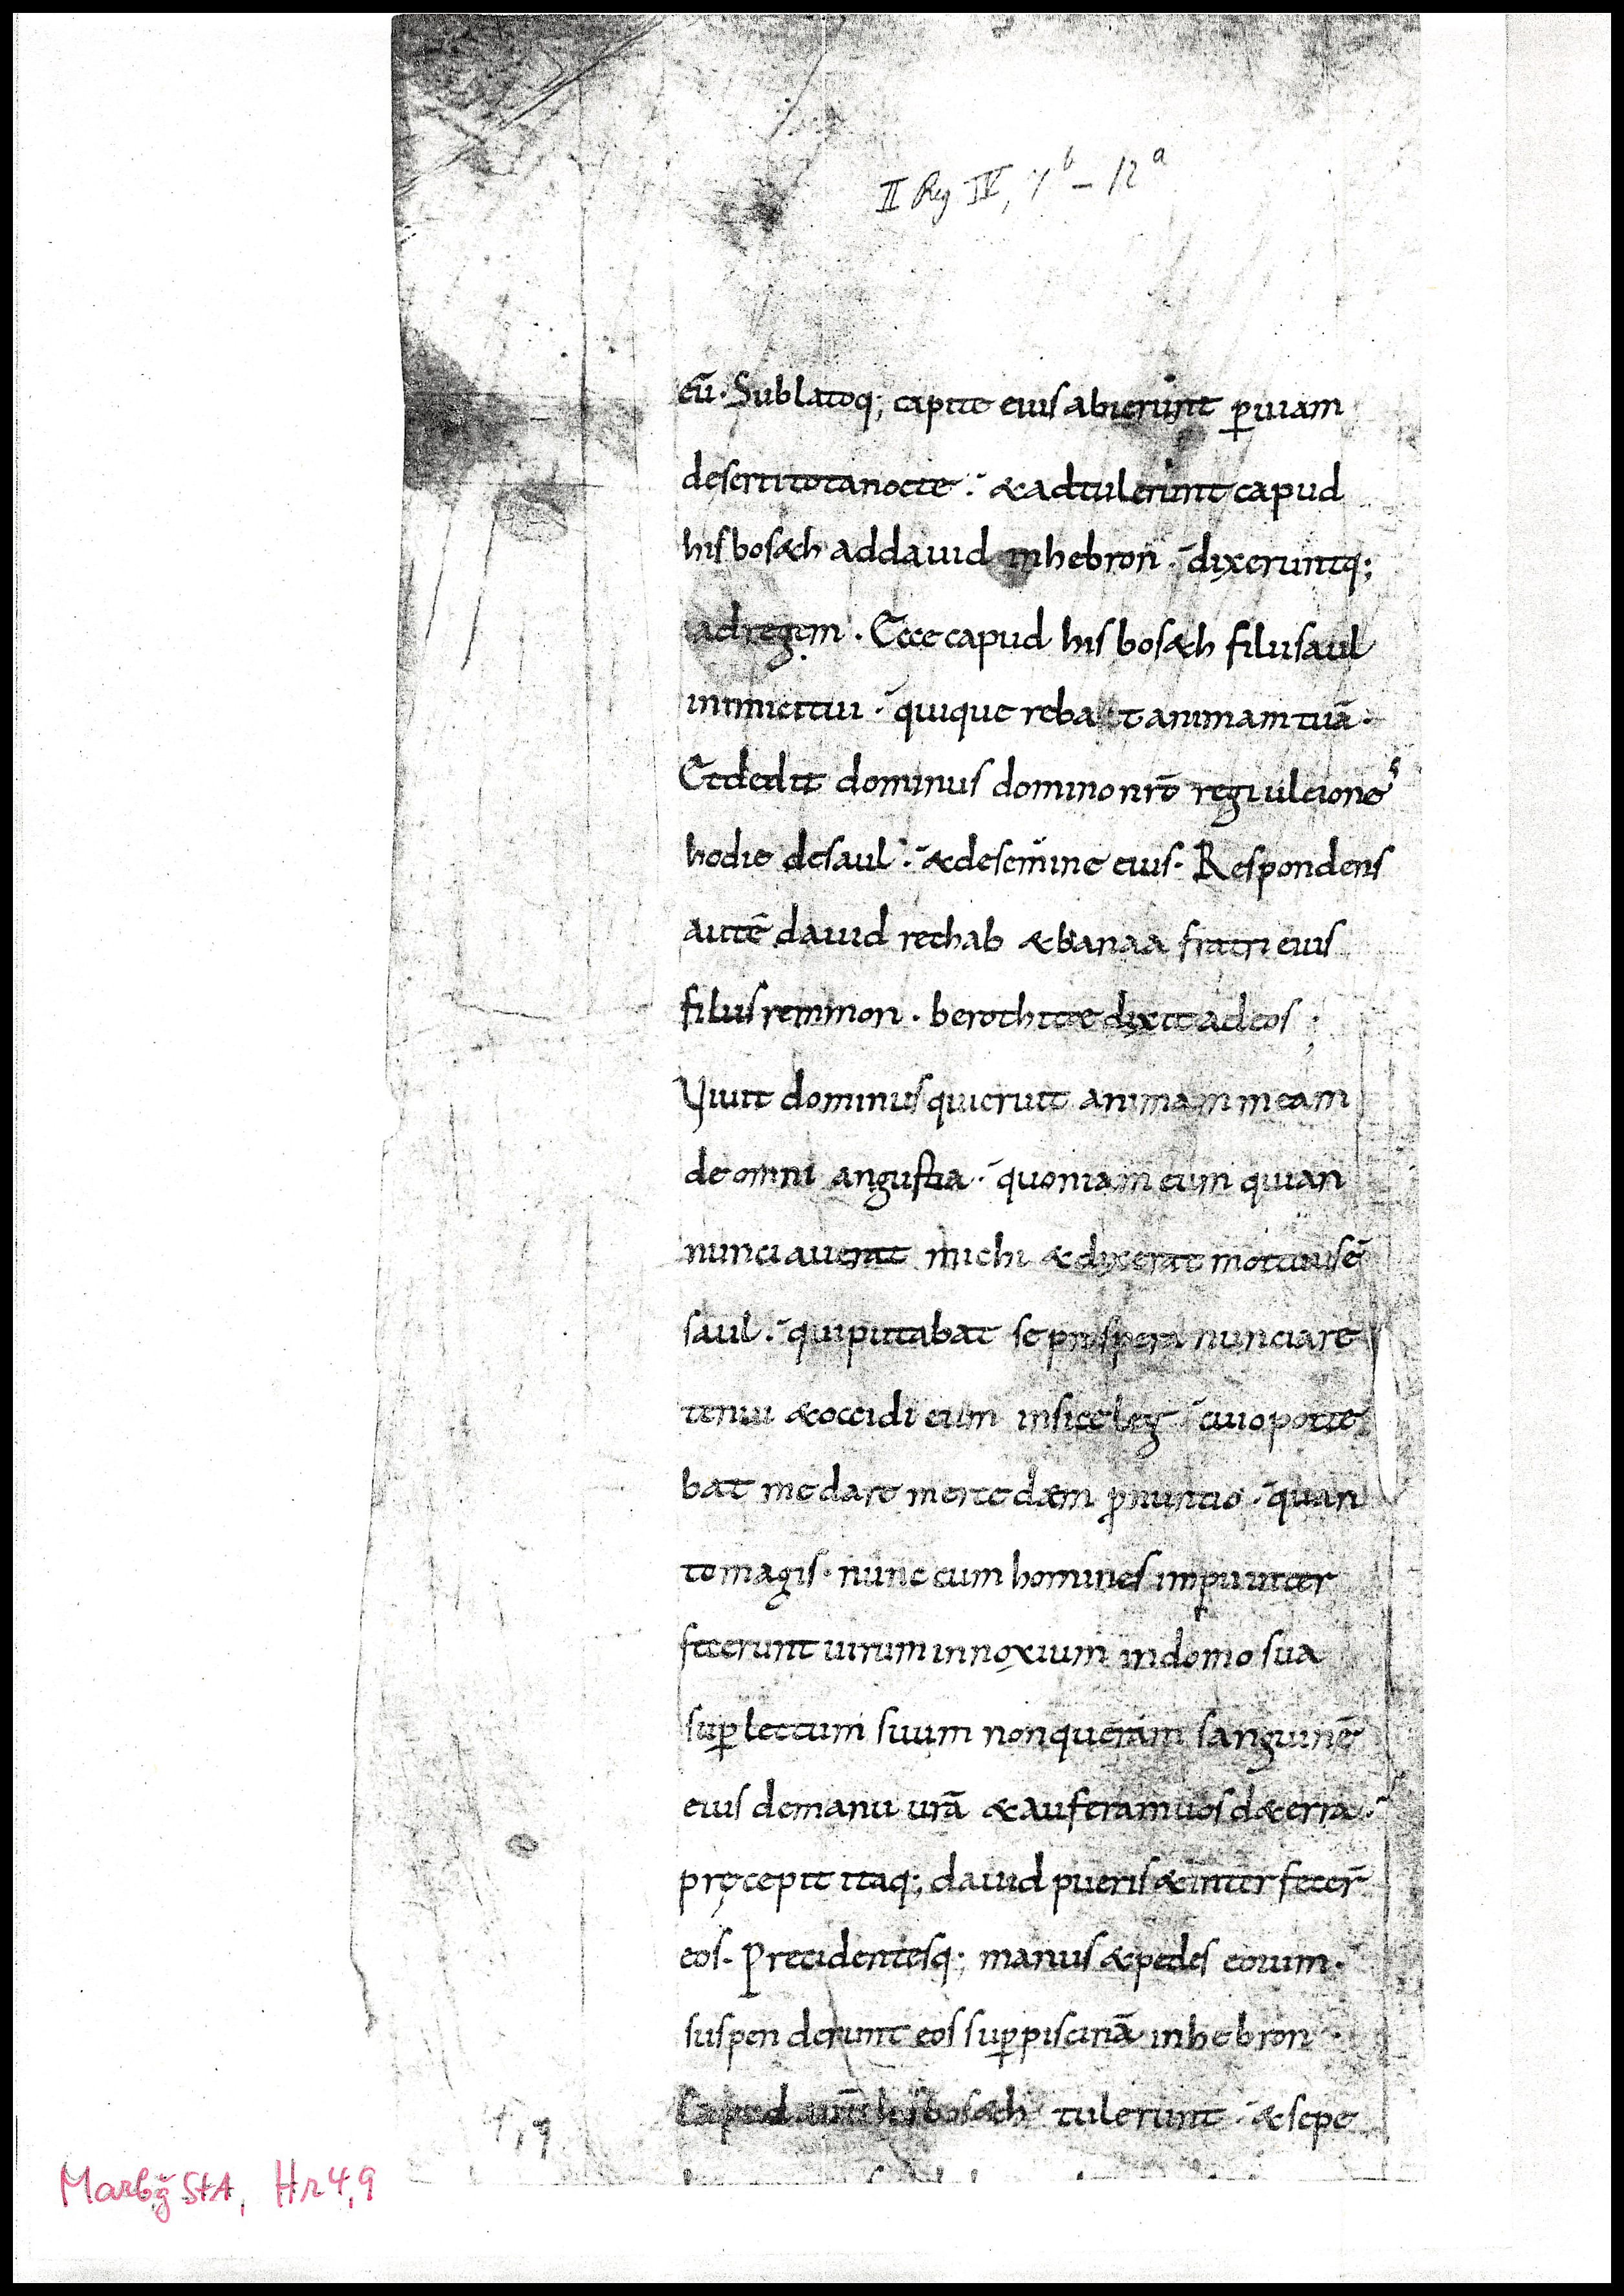 II Reg IV, 7b – 12a
eū. Sublatoq; capite eius abierunt ꝑ uiam
deserti tota nocte. & adtulerunt capud
hisbos&h ad dauid in hebron. dixeruntq;
ad regem. Ecce capud hisbos&h filii saul
inimici tui. qui quaerebat animam tuā.
Et dedit dominus domino nr̄o regi ulcione s
hodie de saul. & de semine eius. Respondens
autē dauid rechab & banaa fratri eius
filiis remmon. berothitae dixit ad eos
Viuit dominus qui eruit animam meam
de omni angustia. quoniam eum qui an
nunciauerat michi & dixerat mortuus ē
saul. qui putabat se prospera nunciare
tenui & occidi eum in siceleg cui oporte
bat me dare mercedem ꝓ nuncio. quan
to magis. nunc cum homines impii inter
fecerunt uirum innoxium in domo sua
suꝑ lectum suum non queram sanguinē
eius de manu urā & auferam uos d& erra.
precepit itaq; dauid pueris & interfecer̄
eos. Precidentesq; manus & pedes eorum.
suspenderunt eos suꝑ piscinā in hebron.
Capud aut̄ hisbos&h tulerunt. & sepe
4,9
Marbg StA, Hr 4,9